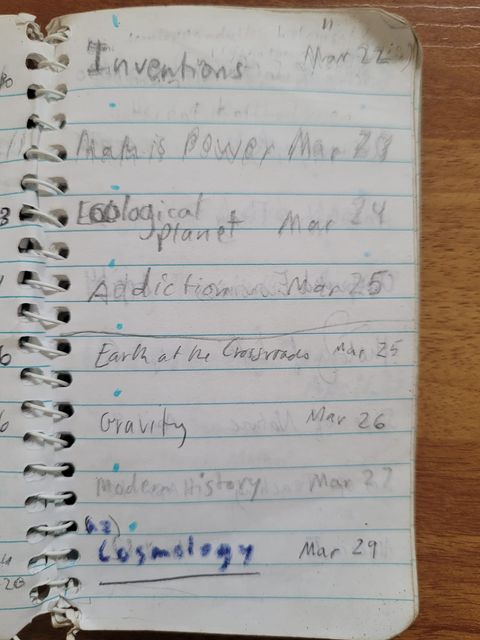 Inventions Mar 22
Math is Power Mar 23
Ecological
planet Mar 24
Addiction Mar 25
Earth at the Crossroads Mar 25
Gravity Mar 26
Modern History Mar 27
Cosmology Mar 29